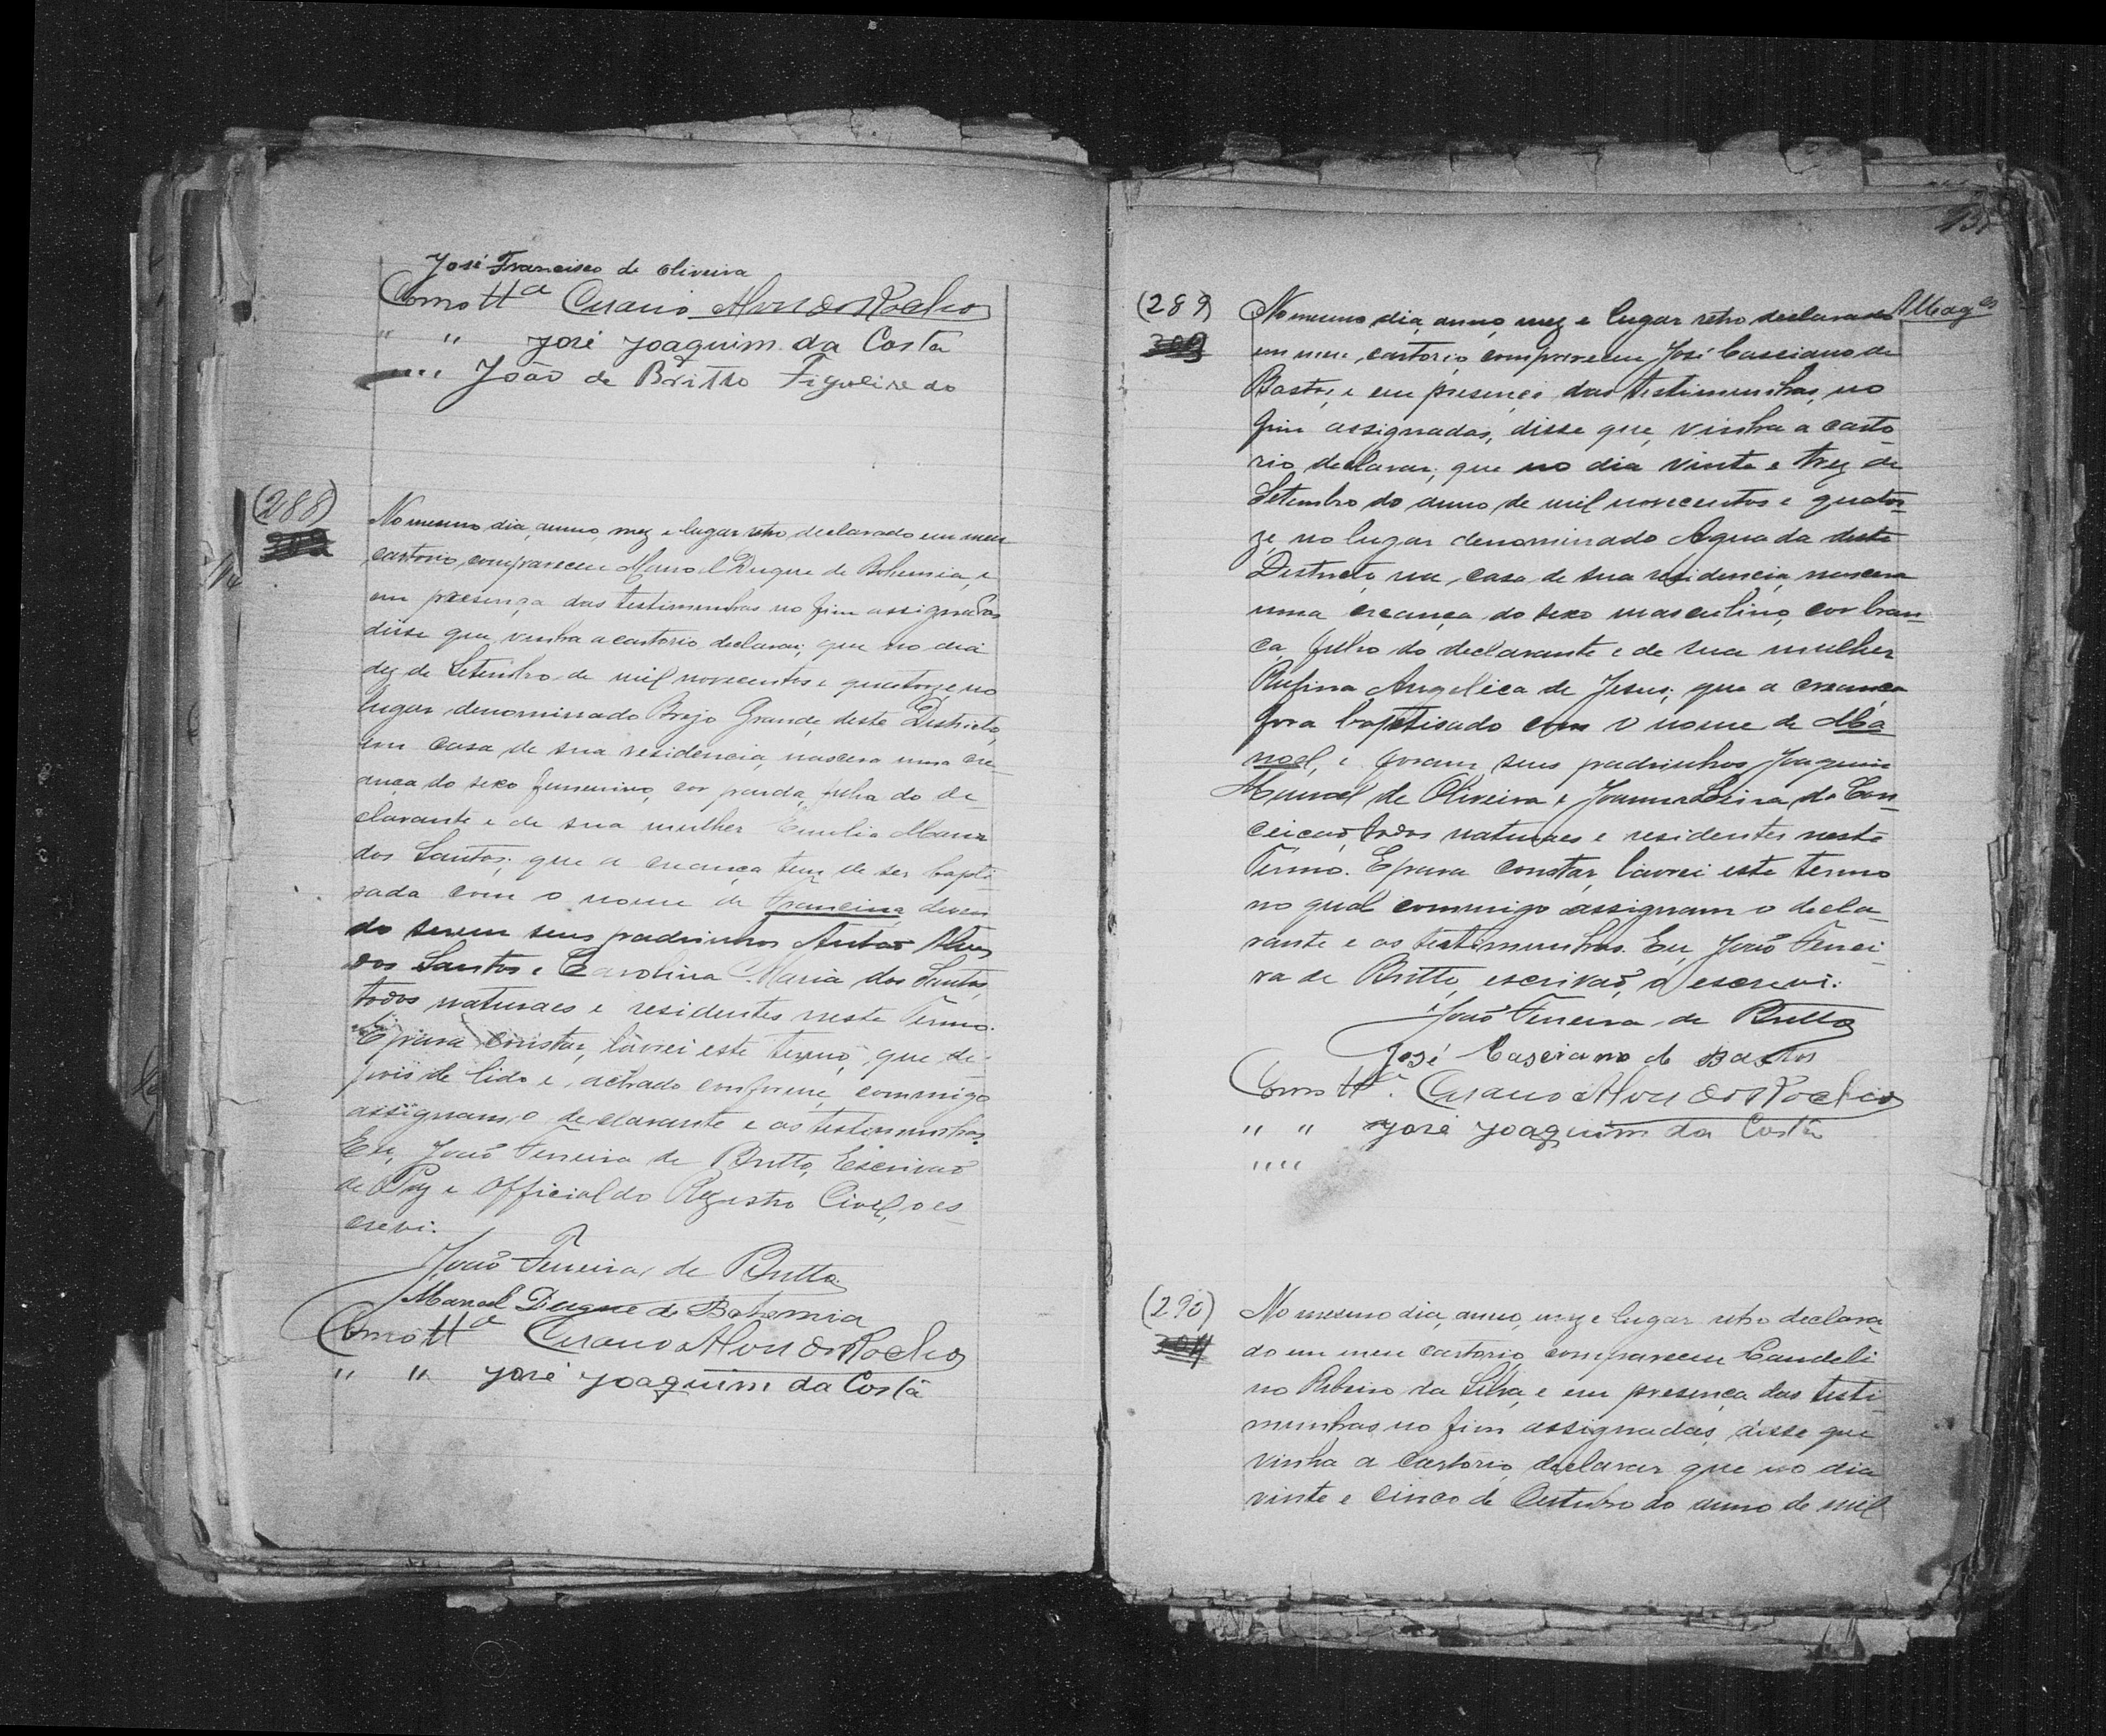 José Francisco de Oliveira
Como ttª Alves da Rocha
" " José Joaquim da Costa
" " João de Britto Figueiredo
(288)
No mesmo dia, anno, mez e lugar retro declarado em meu
cartorio, compareceu Manoel Duque de Bohemia, e
em presença das testimunhas no fim assignadas
disse que, vinha a cartorio declarar; que no dia
dez de Setembro de mil novecentos e quatorze, no
lugar denominado Brejo Grande, deste Districto,
em casa de sua residencia, nascera uma cre-
ança do sexo femenino, cor parda, filha do de-
clarante e de sua mulher Emilia Maria
dos Santos; que a creança tem de ser bapti-
sada com o nome de Francina, deven-
do serem seus padrinhos Antão Alves
dos Santos e Carolina Maria dos Santos,
todos naturaes e residentes neste Termo.
E para constar, lavrei este termo, que de-
pois de lido e achado conforme, commigo
assignam, o declarante e as testimunhas.
Eu, João Ferreira de Britto, Escrivão
de Paz e Official do Registro Civil, o es-
crevi.
João Ferreira de Britto
Manoel Duque de Bohemia
Como ttª Alves da Rocha
" " José Joaquim da Costa
(289)
No mesmo dia, anno, mez e lugar retro declarado
em meu cartorio, compareceu José Casciano de
Bastos, e em presença das testimunhas, no
fim assignadas, disse que, vinha a carto-
rio declarar; que no dia vinte e trez de
Setembro do anno de mil novecentos e quator-
ze, no lugar denominado Aguada deste
Districto, na casa de sua residencia, nascera
uma creança do sexo masculino, cor bran-
ca, filho do declarante e de sua mulher
Rufina Angelica de Jesus; que a creança
fora baptisado com o nome de Ma-
noel, e foram seus padrinhos Joaquim
Manoel de Oliveira e Joanna da Con-
ceicão, todos naturaes e residentes neste
Termo. E para constar, lavrei este termo
no qual commigo assignam o decla-
rante e as testimunhas. Eu, João Ferrei-
ra de Britto, escrivão, o escrevi.
João Ferreira de Britto
José Casciano de Bastos
Como ttª. Alves da Rocha
" " José Joaquim da Costa
" "
(290)
No mesmo dia, anno, mez e lugar retro declara-
do em meu cartorio, compareceu Candeli-
no Ribeiro da Silva, e em presença das testi-
munhas no fim assignadas, disse que
vinha a Cartorio, declarar que no dia
vinte e cinco de Outubro do anno de mil